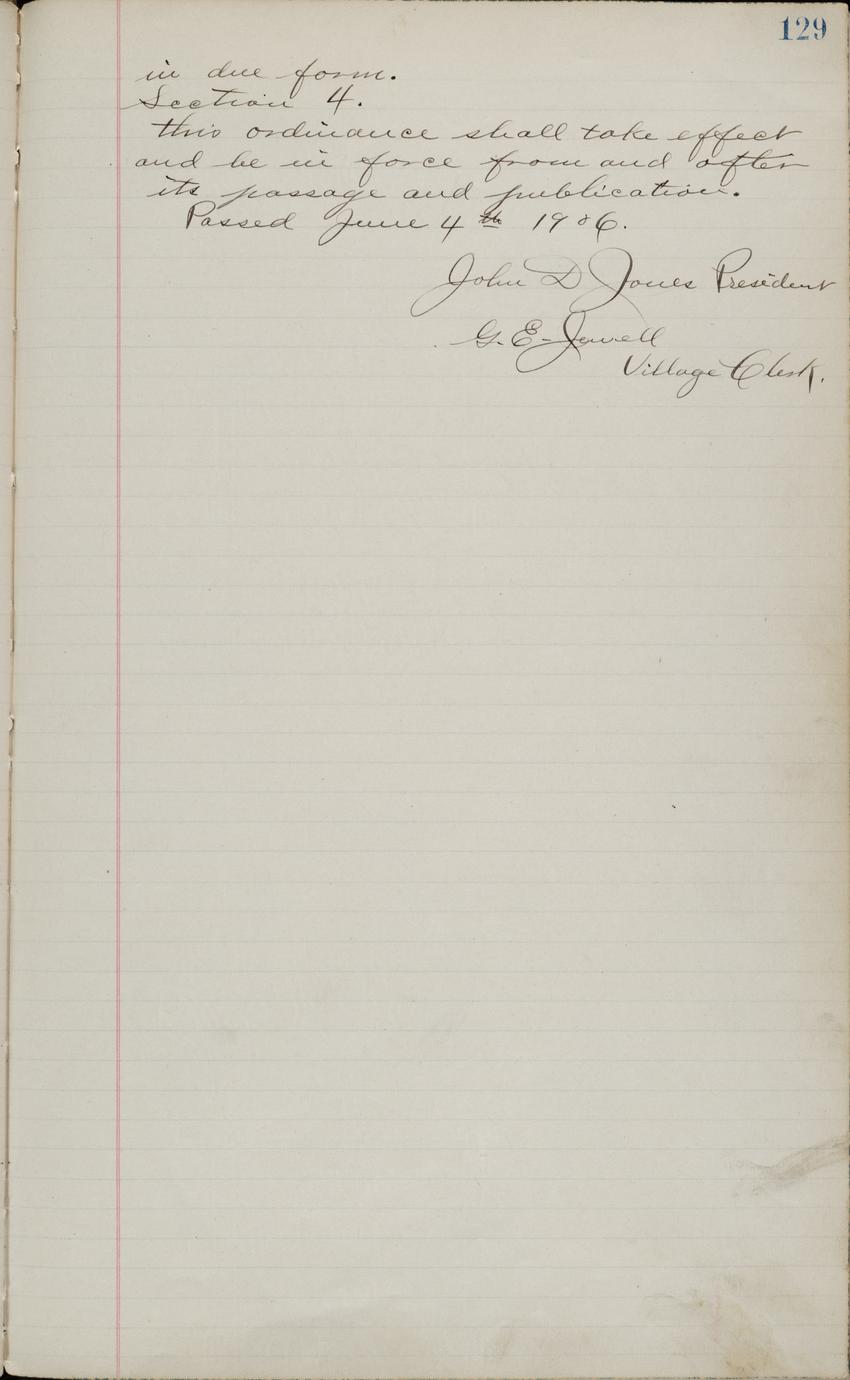 129
in due form.
Section 4.
this ordinance shall take effect
and be in force from and after
its passage and publication.
Passed June 4th 1906.
John D Jones President
G. E. Jewell
Village Clerk.